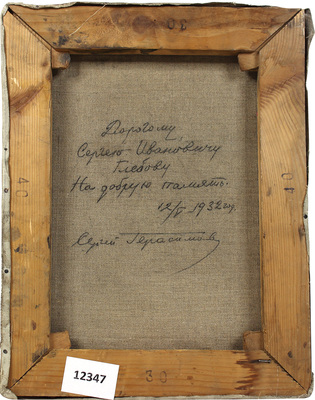 30
Дорогому
Сергею Ивановичу
Глебову
На добрую память.
12/V 1932 год.
Сергей Герасимов
40
40
30
12347